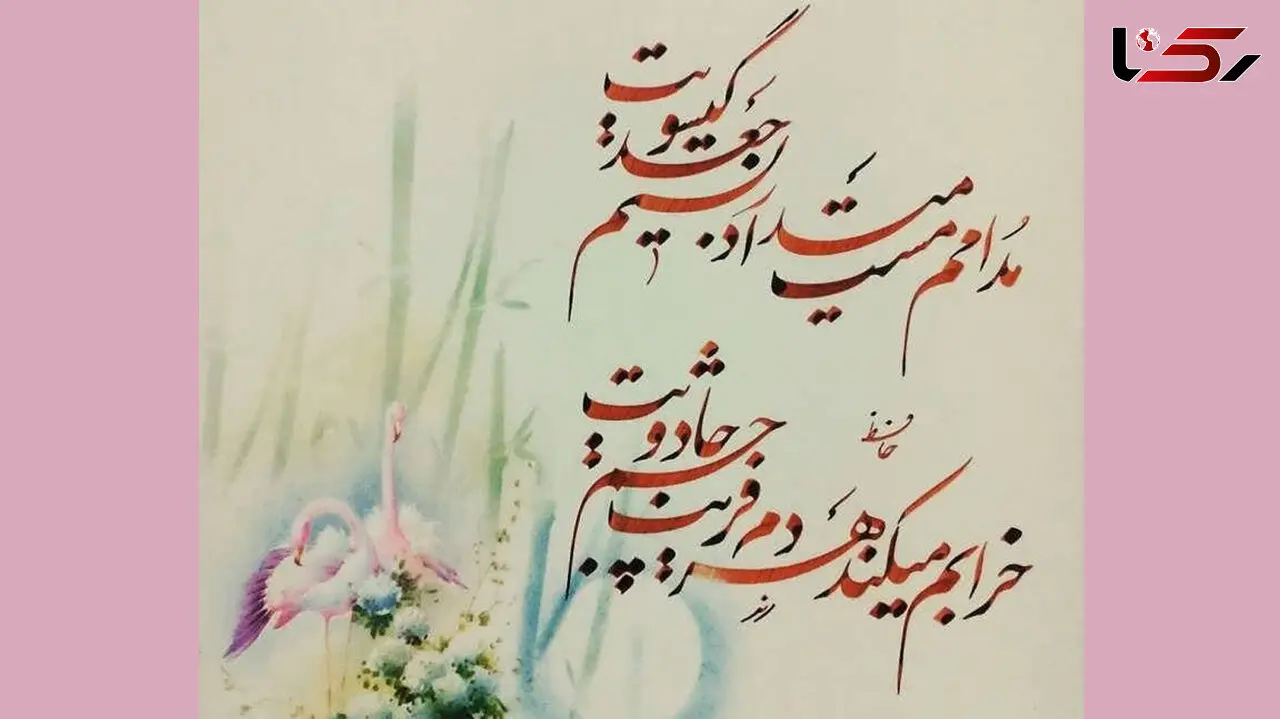 رکنا
مُدامم مست میدارد نسیم جعد گیسویت
حافظ
خرابم میکند هر دم فریب چشم جادویت